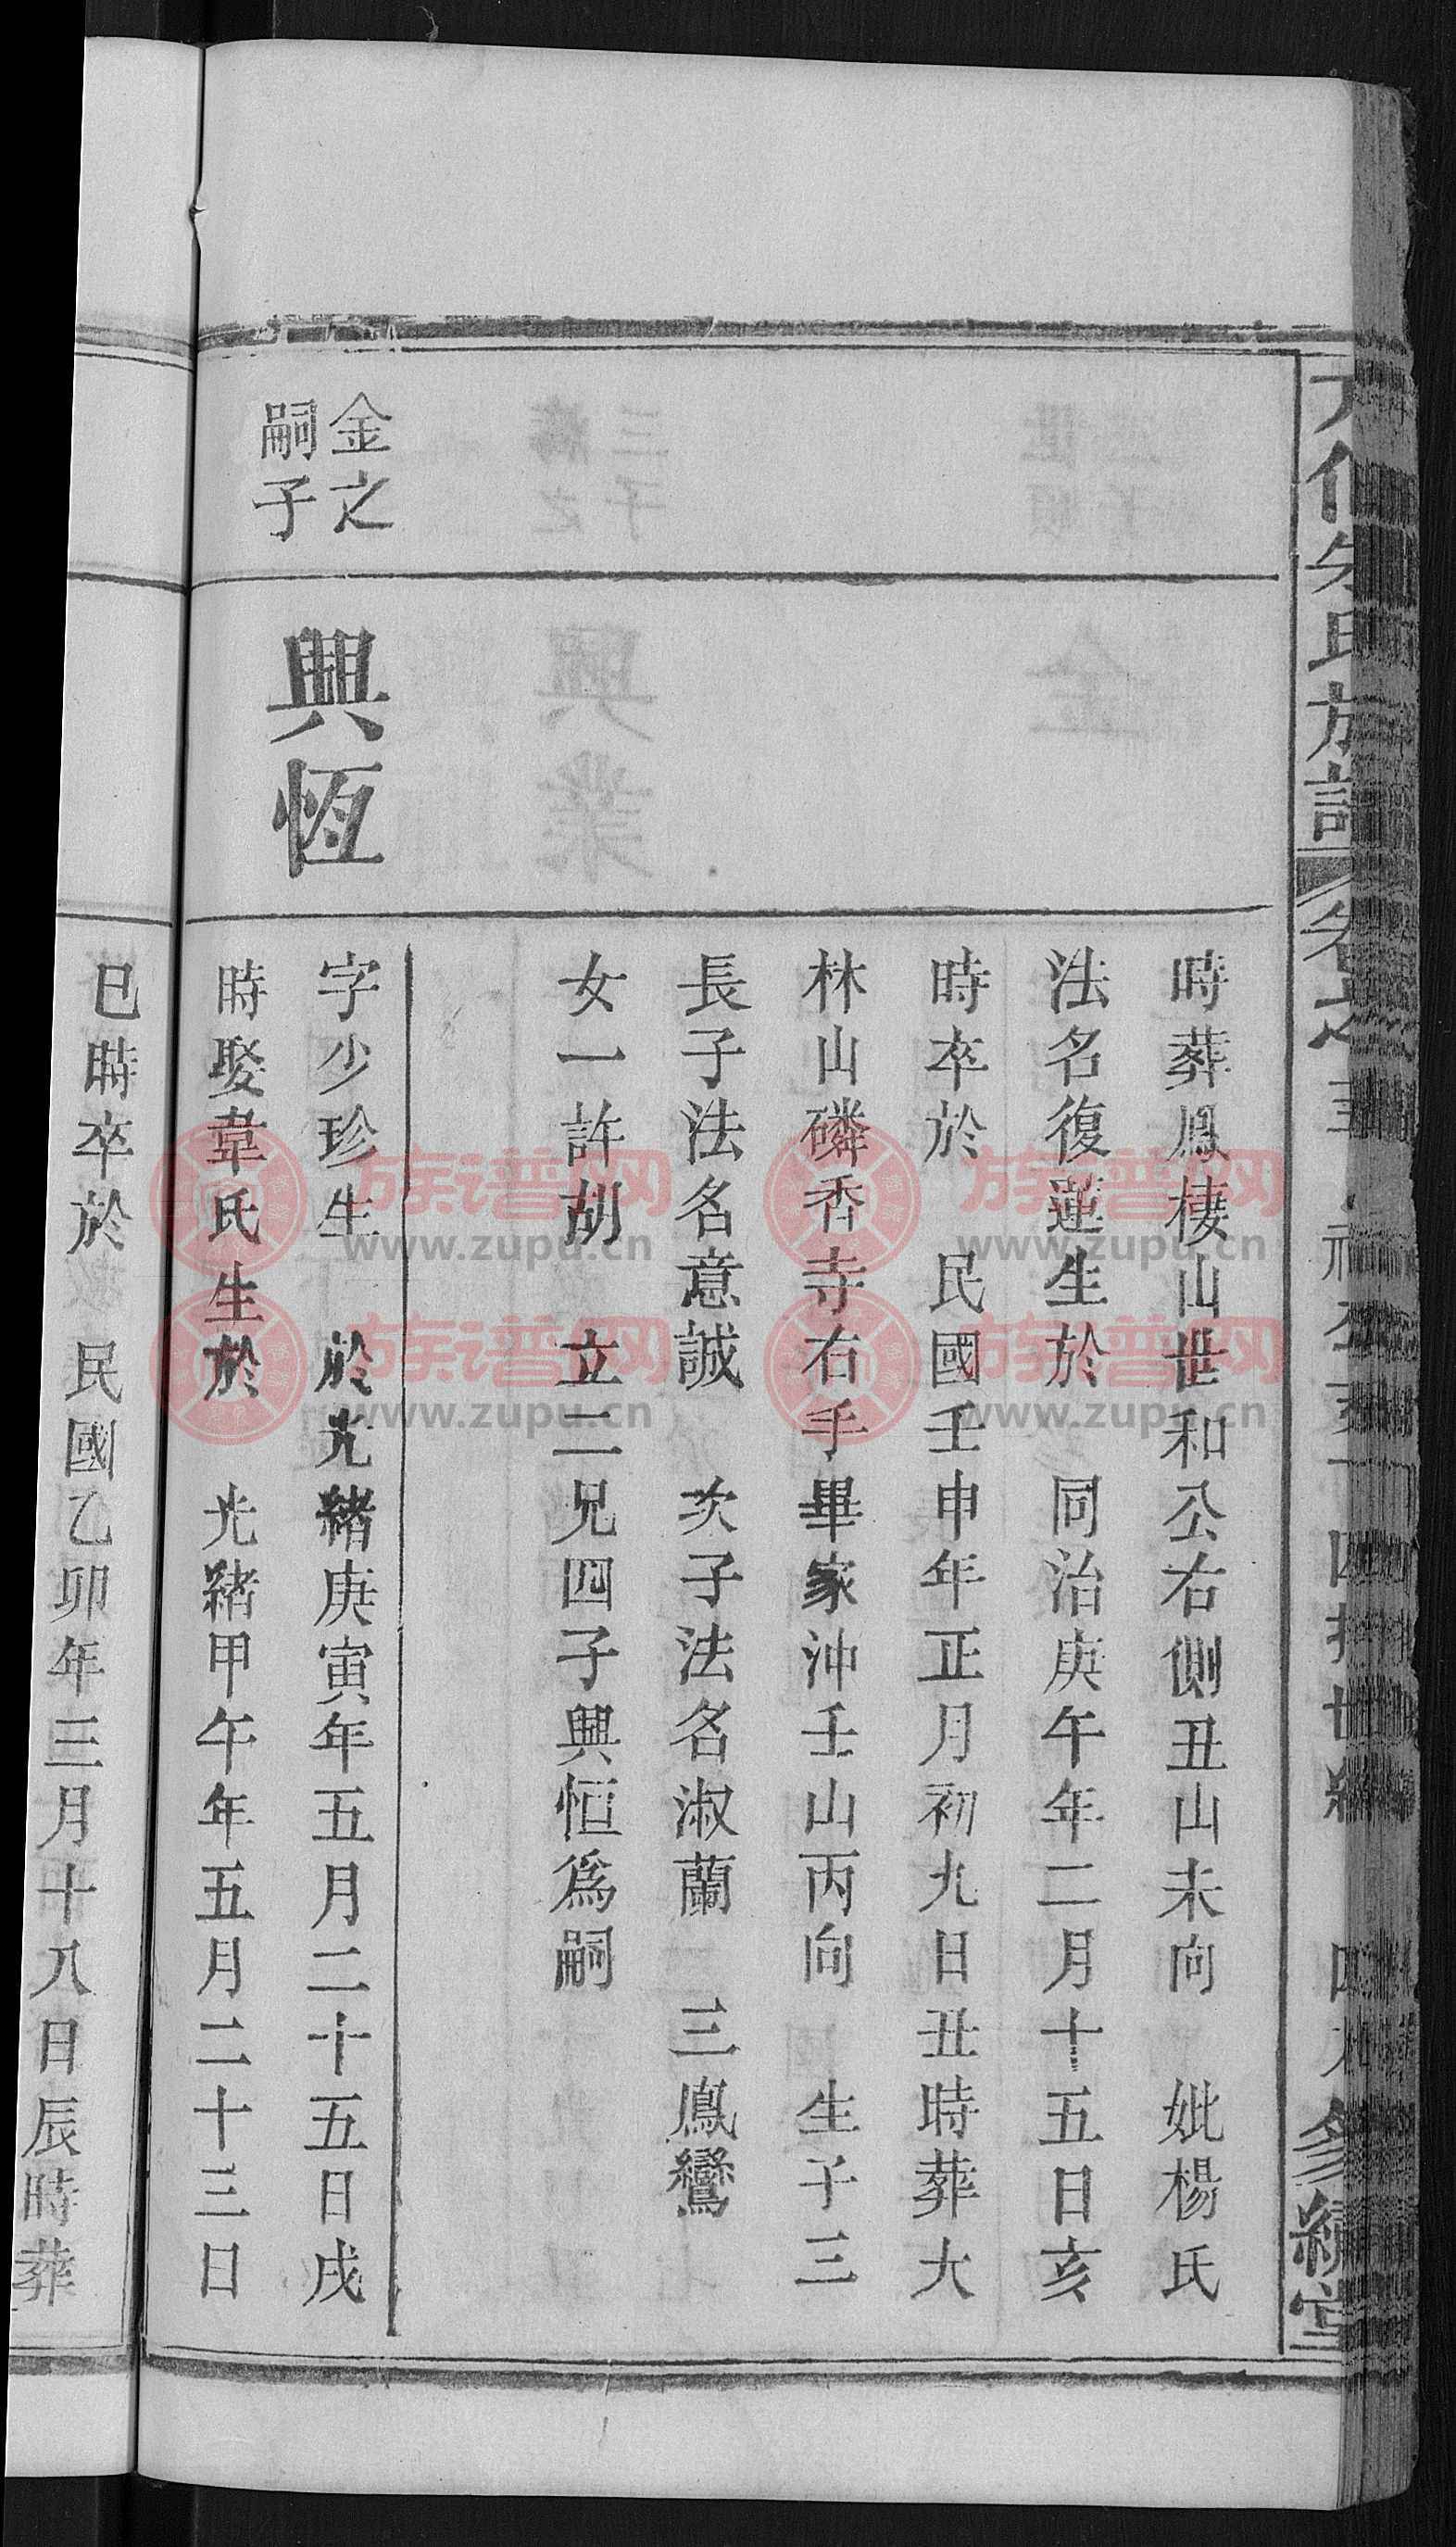 時葬鳳棲山世和公右側丑山未向　妣楊氏
法名復蓮生於　同治庚午年二月十五日亥
時卒於　民國壬申年正月初九日丑時葬大
林山磷香寺右手畢家沖壬山丙向　生子三
長子法名意誠　次子法名淑蘭　三鳳鸞
女一許胡　立二兄四子興恒爲嗣
金之
嗣子
興恆
字少珍生　於光緒庚寅年五月二十五日戌
時娶韋氏生於　光緒甲午年五月二十三日
巳時卒於　民國乙卯年三月十八日辰時葬
族谱网
www.zupu.cn
族谱网
www.zupu.cn
族谱网
www.zupu.cn
族谱网
www.zupu.cn